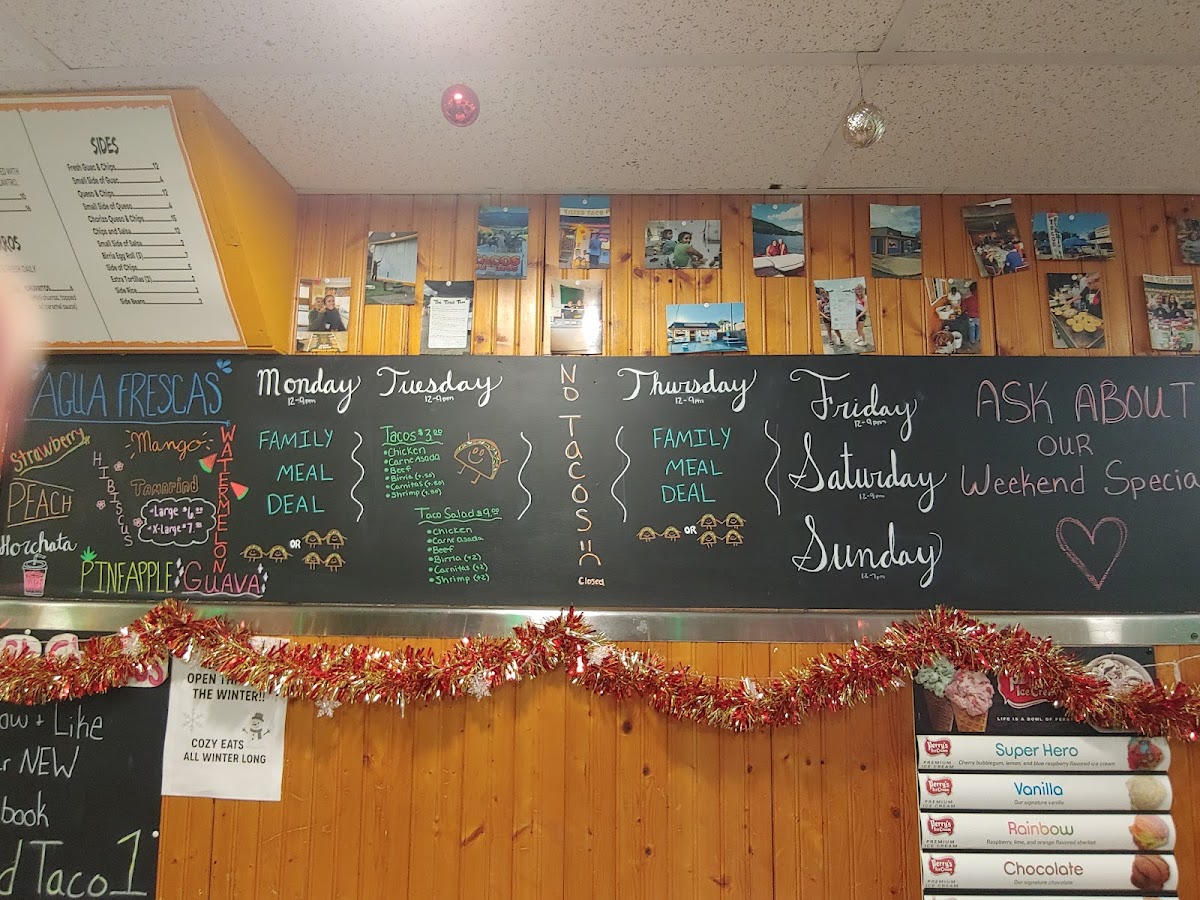 SIDES
Fresh Guac & Chips 12
Small Side of Guac 4
Queso & Chips 12
Small Side of Queso 4
Chorizo Queso & Chips 15
Chips and Salsa 12
Small Side of Salsa 2
Birria Egg Roll (3) 7
Side of Chips 5
Extra Tortillas (2)
Side Rice
Side Beans 3
AGUA FRESCAS
Strawberry
Mango
WATERMELON
HIBISCUS
PEACH
Tamarind
Large $6.00
X-Large $7.00
Horchata
PINEAPPLE
GUAVA
Monday
12-9pm
FAMILY
MEAL
DEAL
OR
Tuesday
12-9pm
Tacos $3.00
• Chicken
• Carne Asada
• Beef
• Birria (+.50)
• Carnitas (+.50)
• Shrimp (+.50)
Taco Salad $9.00
• Chicken
• Carne Asada
• Beef
• Birria (+2)
• Carnitas (+2)
• Shrimp (+2)
No Tacos
Closed
Thursday
12-9pm
FAMILY
MEAL
DEAL
OR
Friday
12-9pm
Saturday
12-9pm
Sunday
12-7pm
ASK ABOUT
OUR
Weekend Specia
OPEN
THE WINTER!!
COZY EATS
ALL WINTER LONG
ow + Like
r NEW
book
d Taco 1
Ice Cream
LIFE IS A BOWL OF
Perry's
ICE CREAM
PREMIUM
ICE CREAM
Super Hero
Cherry bubblegum, lemon, and blue raspberry flavored ice cream
Perry's
ICE CREAM
PREMIUM
ICE CREAM
Vanilla
Our signature vanilla
Perry's
ICE CREAM
PREMIUM
ICE CREAM
Rainbow
Raspberry, lime, and orange flavored sherbet
Perry's
ICE CREAM
PREMIUM
ICE CREAM
Chocolate
Our signature chocolate